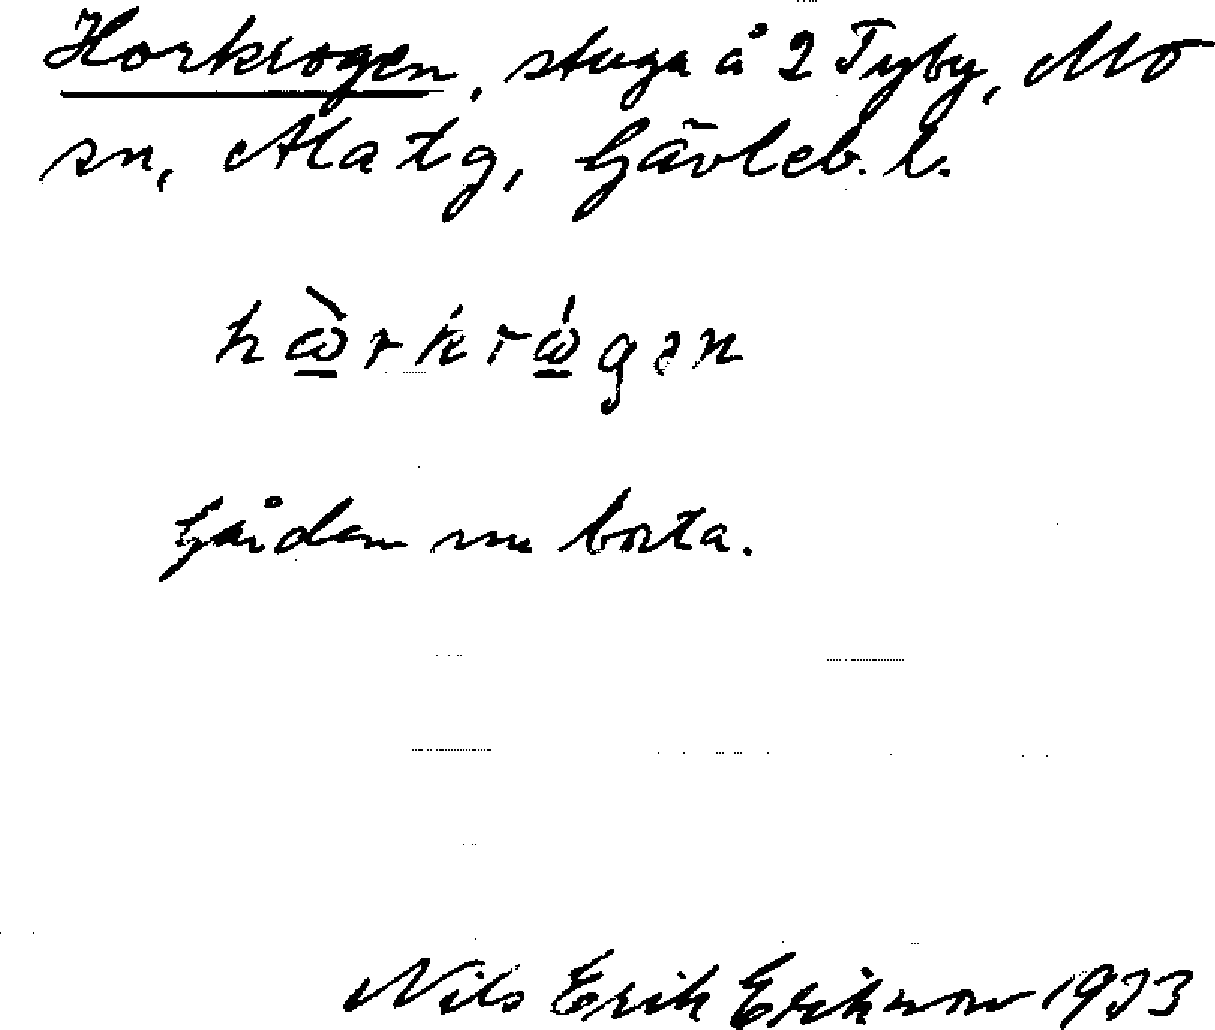 Horkrogen, stuga å 2 Tyby, Mo
sn, Ala tg, Gävleb. l.
hὼrkrώgən
Gården nu borta.
Nils Erik Eriksson 1933